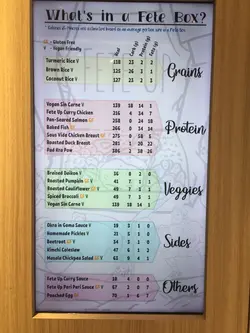 What's in a Fete Box?
- Gluten Free
V - Vegan Friendly
kcal Carb (g) Protein (g) Fats (g)
Turmeric Rice V 118 23 2 2
Brown Rice V 125 26 3 1
Coconut Rice V 127 23 2
Grains
Vegan Sin Carne V 139 18 14 1
Fete Up Curry Chicken 216 4 34 7
Pan-Seared Salmon 258 0 24 18
Baked Fish 0 34
Sous Vide Chicken Breast 275 0 58 5
Roasted Duck Breast 281 1 26 22
Pad Kra Pow 386 2 38 26
Protein
Braised Daikon V 36 8 2 0
Roasted Pumpkin V 41 7 1
Roasted Cauliflower V 40 7 3
Spiced Broccoli V 40 7 3 1
Vegan Sin Carne V 139 18 14 1
Veggies
Okra in Goma Sauce V 18 3 1 0
Homemade Pickles V 21 5 1 0
Beetroot V 34 5 1
Kimchi Coleslaw 47 6 1 2
Masala Chickpea Salad V
Sides
Fete Up Curry Sauce 18 4 0 0
Fete Up Peri Peri Sauce V 67 0 0
Poached Egg 70 6
Others